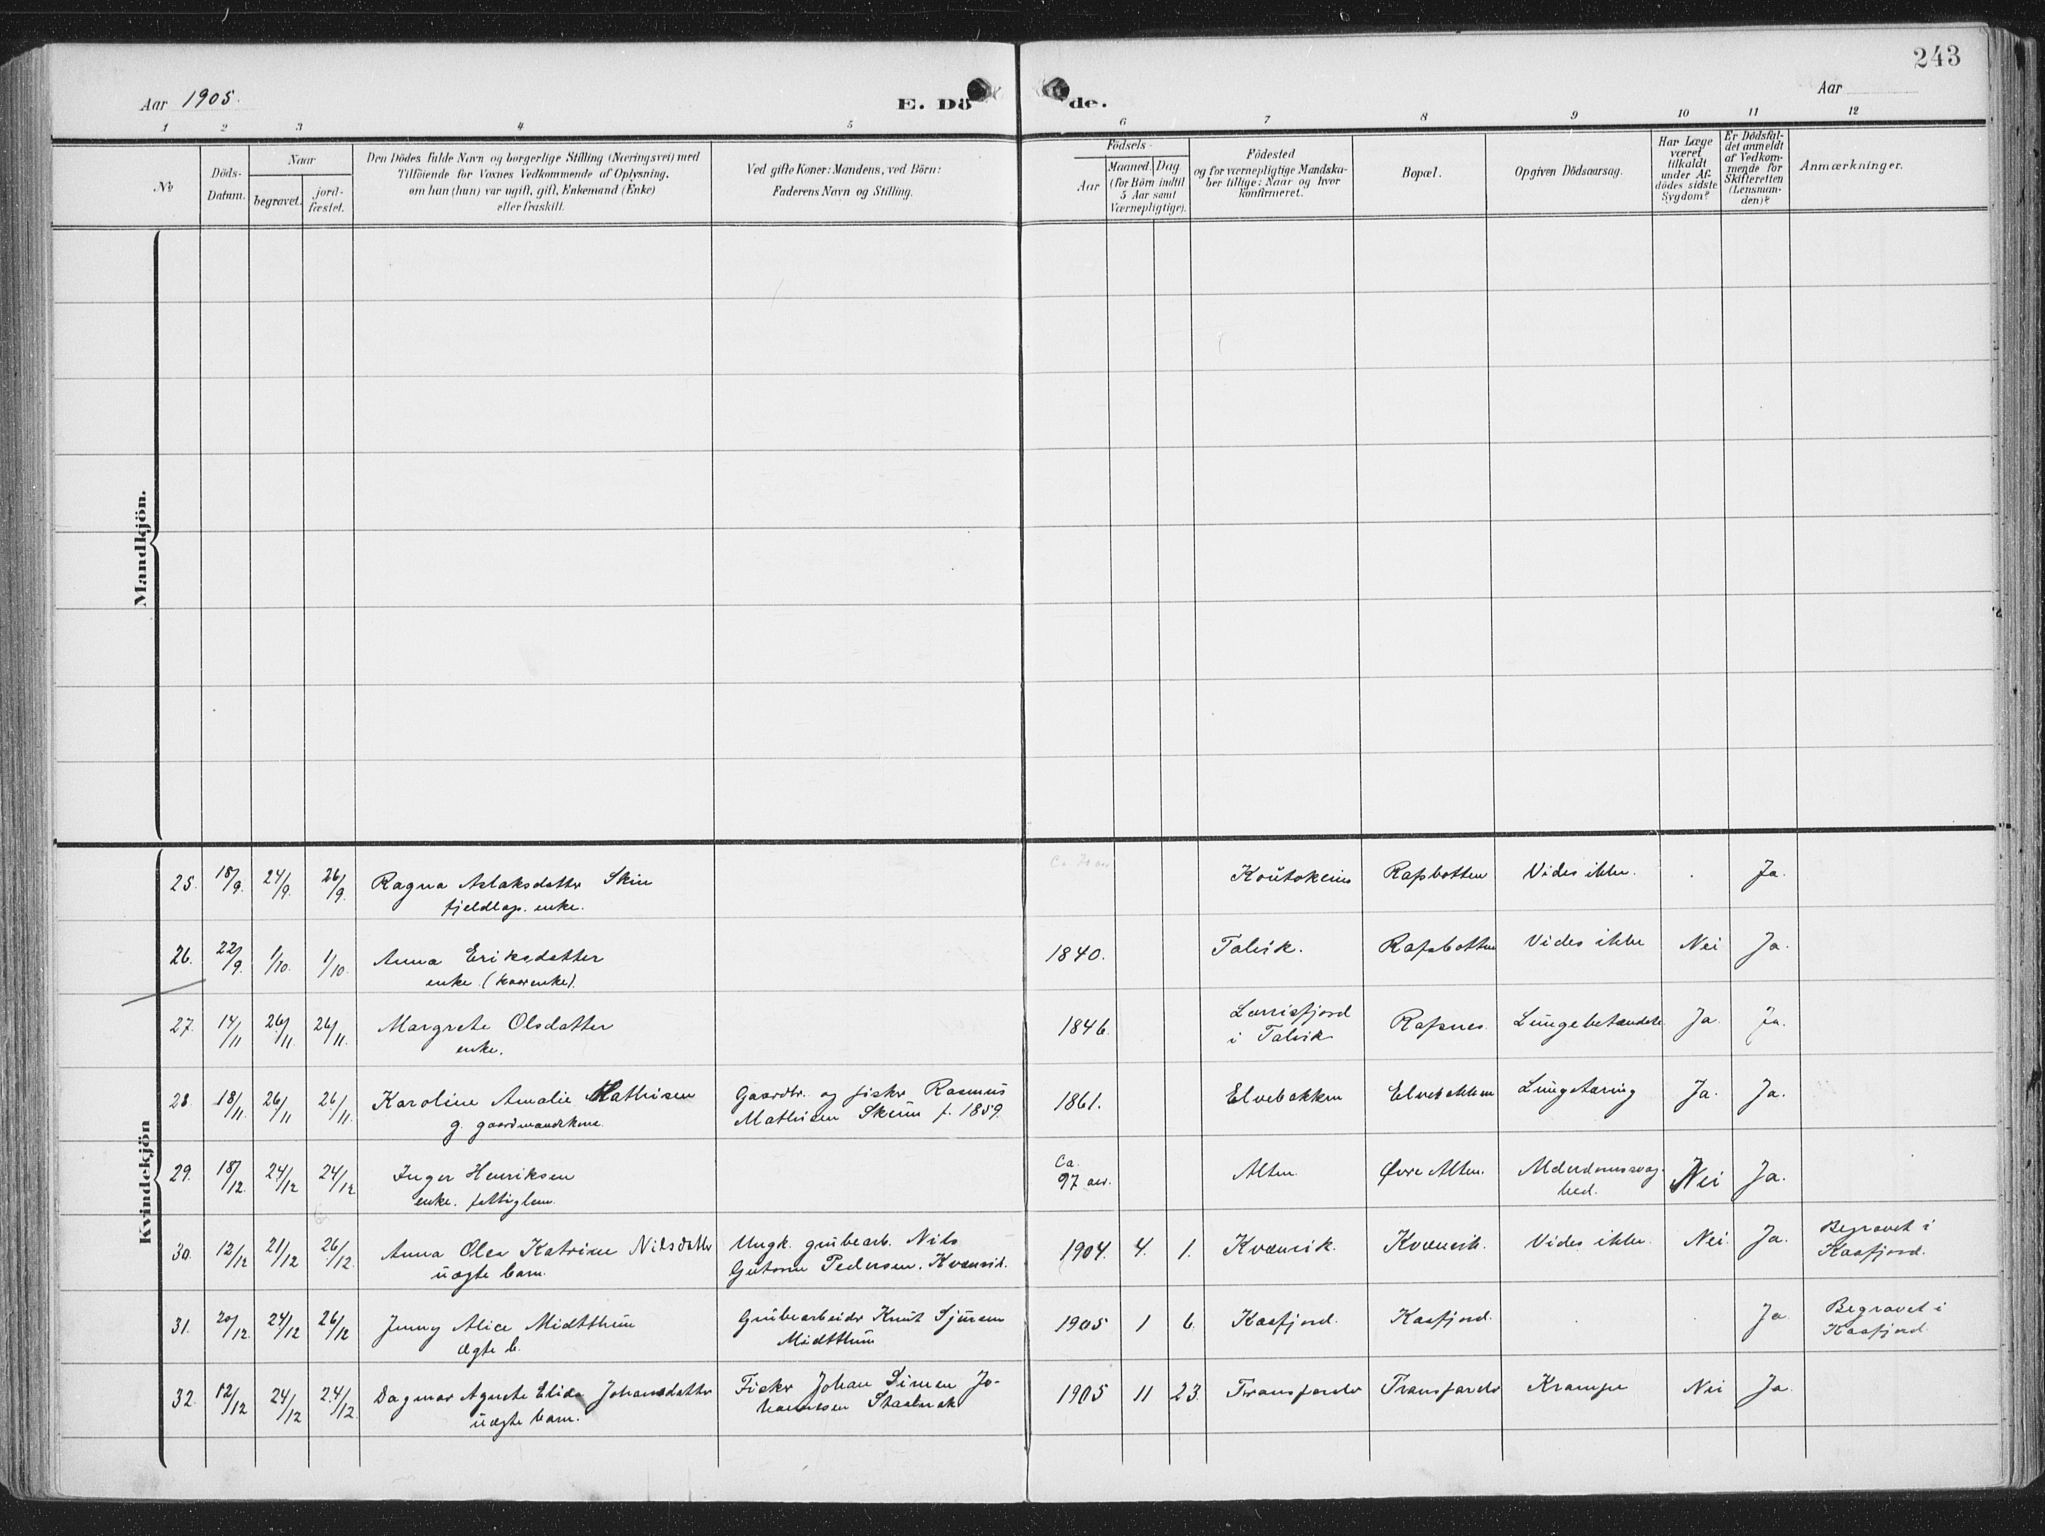 243
Aar 1905.
E. Döde.
Aar
1 2 3 4 5 6 7 8 9 10 11 12
No
Döds-
Datum.
Naar
begravet.
jord-
fæstet.
Den Dödes fulde Navn og borgerlige Stilling (Næringsvei) med
Tilföiende for Voxnes Vedkommende af Oplysning,
om han (hun) var ugift, gift, Enkemand (Enke)
eller fraskilt.
Ved gifte Koner: Mandens, ved Börn:
Faderens Navn og Stilling.
Födsels-
Aar
Maaned. Dag
(for Börn indtil
5 Aar samt
Værnepligtige).
Födested
og for værnepligtige Mandska-
ber tillige: Naar og hvor
konfirmeret.
Bopæl.
Opgiven Dödsaarsag.
Har Læge
været
tilkaldt
under Af-
dödes sidste
Sygdom?
Er Dödsfal-
det anmeldt
af Vedkom-
mende for
Skifteretten
(Lensman-
den)?
Anmærkninger.
Mandkjön.
Kvindekjön
25. 18/9. 24/9. 26/9. Ragna Aslaksdatter Skin Koutokeino Rafsbotten Vides ikke. Ja.
fjeldlap. enke.
26. 22/9. 1/10. 1/10. Anna Eriksdatter 1840. Talvik. Rafsbotten Vides ikke Nei Ja.
enke
27. 14/11 26/11 26/11. Margrete Olsdatter 1846.
i Talvik Rafsnes. Ja. Ja.
enke.
28. 18/11. 26/11 26/11. Karoline Amalie Mathisen Gaardbr. og fisker Rasmus 1861. Elvebakken Elvebakken Lungetæring Ja. Ja.
g. gaardmandskone. Mathisen f. 1859.
29. 18/12. 24/12 24/12 Inger Henriksen Ca. 97 aar. Alten Øvre Alten. Alderdomssvag-
hed. Nei Ja.
enke.
30. 12/12 21/12 26/12. Anna Olea Katrine Nilsdatter Ungk. grubearb. Nils 1904. 4. 1. Kvænvik. Kvænvik. Vides ikke. Nei. Ja. Begravet i
Kaafjord.
uægte barn. Pedersen. Kvænvik.
31. 20/12. 24/12 26/12 Jenny Alice Midtthun Grubearbeider Knut Sjursen 1905 1 6. Kaafjord. Kaafjord. Ja. Begravet i
Kaafjord.
ægte b. Midtthun
32. 12/12 24/12 24/12. Dagmar Agnete Elida Johansdatter Fisker Johan Simon Jo- 1905 11 23. Transfarelv Transfarelv Krampe Nei Ja.
uægte barn. hannessen